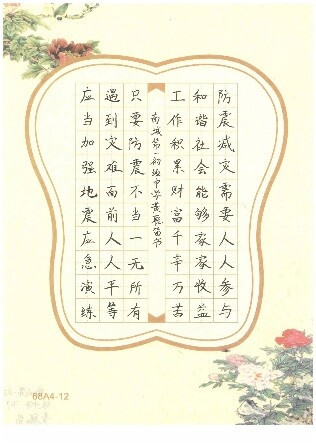 防震减灾需要人人参与
和谐社会能够家家收益
工作积累财富千辛万苦
南城第一初级中学黄书
只要防震不当一无所有
遇到灾难面前人人平等
应当加强地震应急演练
68A4-12